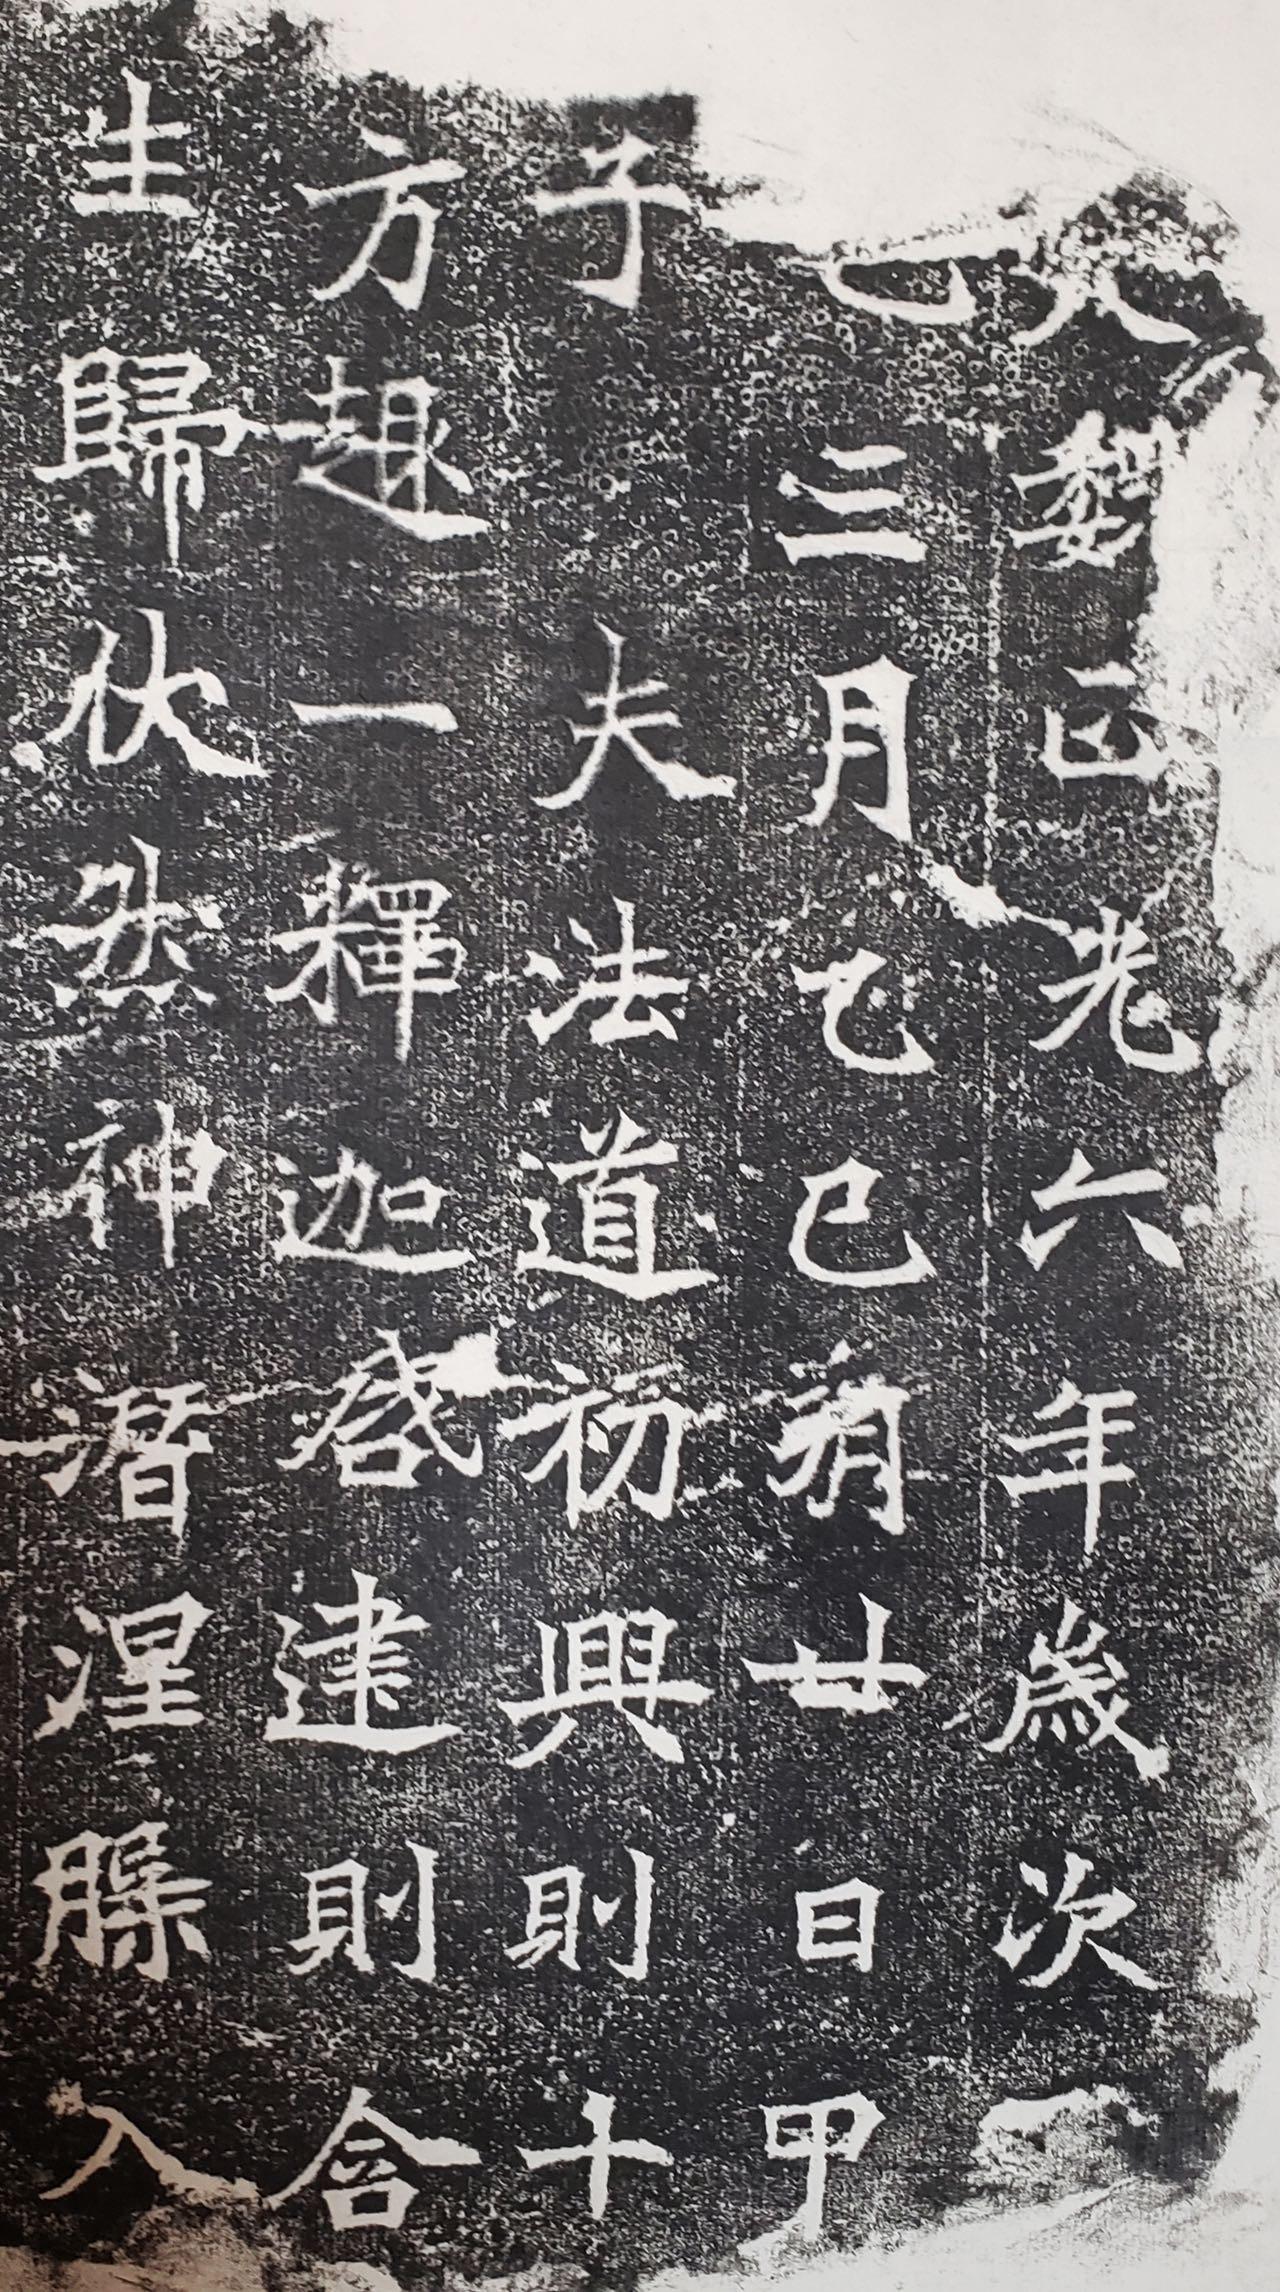 大魏正光六年歲次
巳三月乙巳朔廿日甲
子夫法道初興則十
方趣一釋迦啓建則含
生歸伏然神潛涅槃入